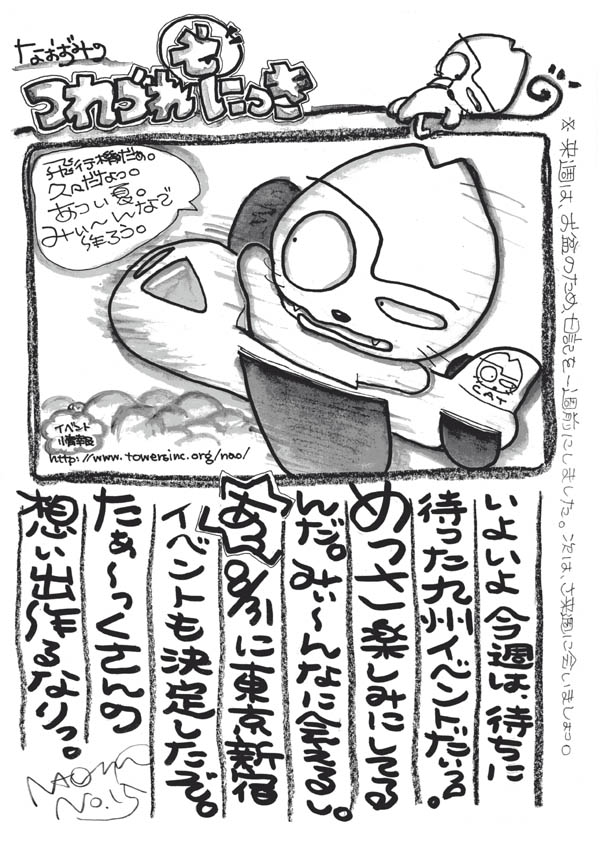 なおみの
つれづれにっき
飛行機だぁ。
久々だなっ。
あつい夏。
みぃ〜んなで
作ろう。
CAT
イベント
情報
http://www.towersinc.org/nao/
※来週は、お盆のため、日記を一週前にしました。次は、さ来週に会いましょっ。
いよいよ今週は、待ちに
待った九州イベントだいっ。
めっさ楽しみにしてる
んだ。みぃ〜んなに会えるし。
あっ、8/31に東京新宿
イベントも決定したぞ。
たぁ〜っくさんの
想い出作るなりっ。
No.15